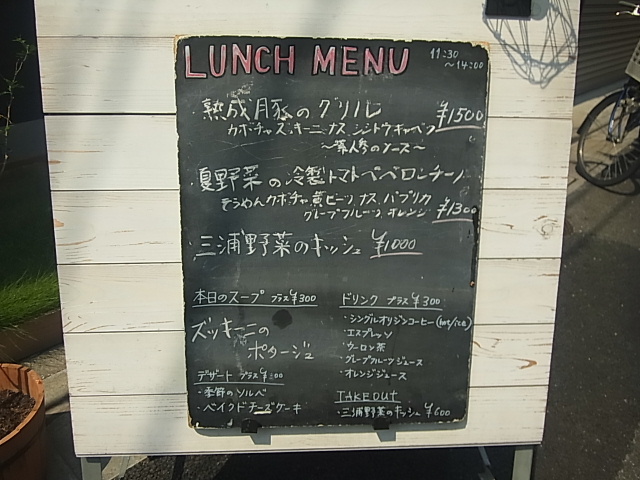 LUNCH MENU 11:30
～14:00
熟成豚のグリル ¥1500
カボチャ ズッキーニ ナス シシトウ キャベツ
～人参のソース～
夏野菜の冷製トマトペペロンチーノ
そうめんカボチャ 黄ピーマン ナス パプリカ
グレープフルーツ オレンジ ¥1300
三浦野菜のキッシュ ¥1000
本日のスープ プラス¥300
ズッキーニの
ポタージュ
デザート プラス
・季節のソルベ
・ベイクドチーズケーキ
ドリンク プラス¥300
・シングルオリジンコーヒー(hot/ice)
・エスプレッソ
・ウーロン茶
・グレープフルーツジュース
・オレンジジュース
TAKEOUT
・三浦野菜のキッシュ ¥600